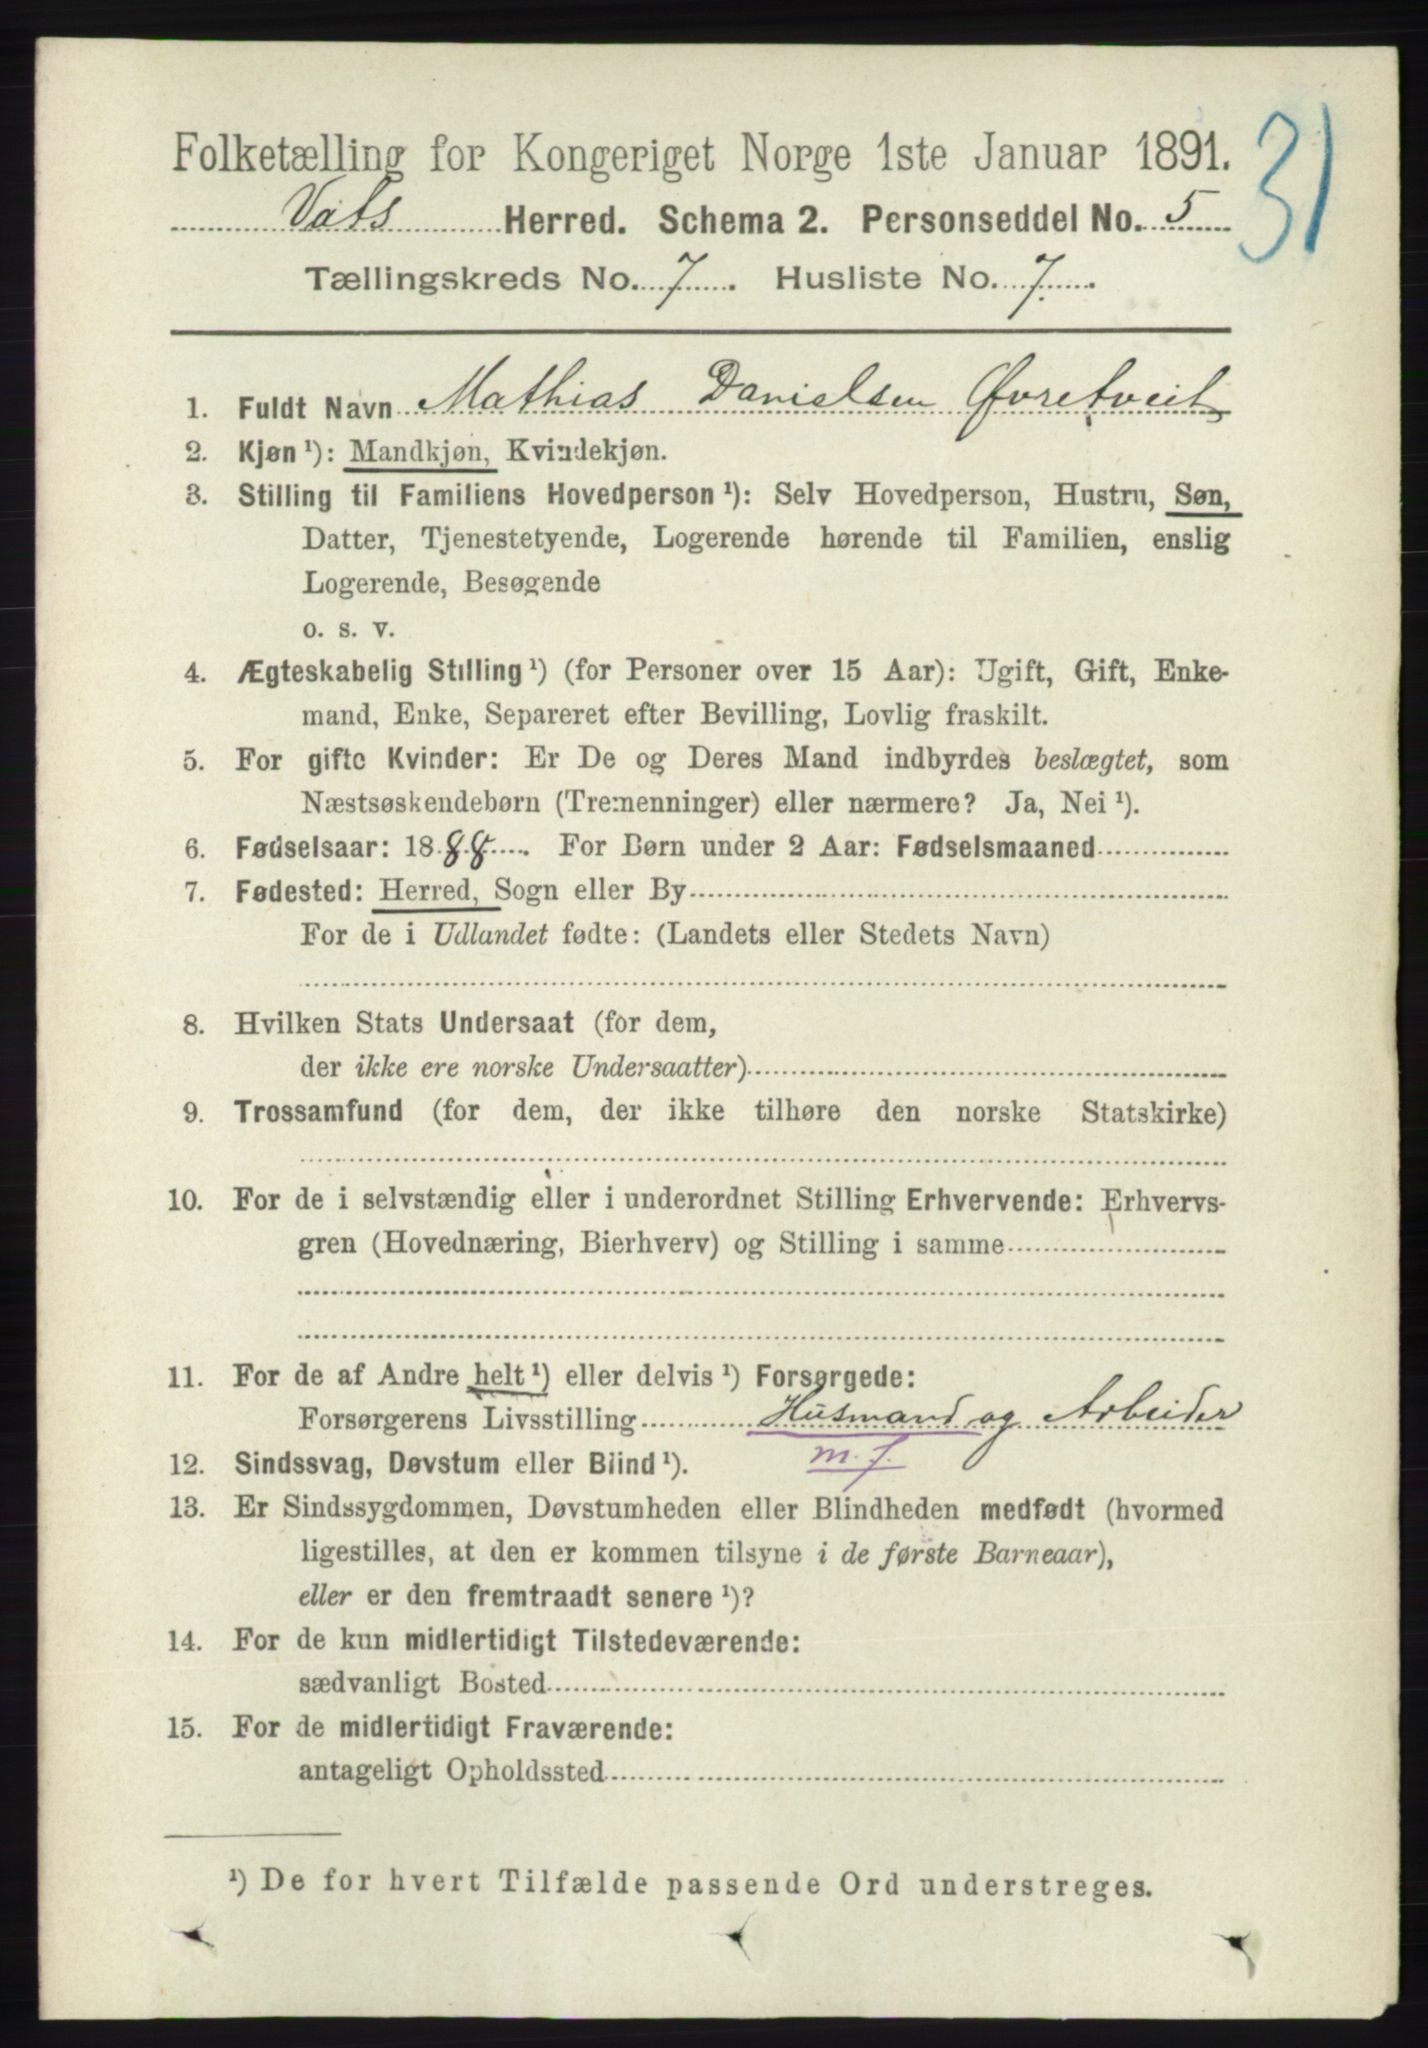 31
Folketælling for Kongeriget Norge 1ste Januar 1891.
Vats Herred. Schema 2. Personseddel No. 5
Tællingskreds No. 7. Husliste No. 7.
1. Fuldt Navn Mathias Danielsen Øvretveit
2. Kjøn ¹): Mandkjøn, Kvindekjøn.
3. Stilling til Familiens Hovedperson ¹): Selv Hovedperson, Hustru, Søn,
Datter, Tjenestetyende, Logerende hørende til Familien, enslig
Logerende, Besøgende
o. s. v.
4. Ægteskabelig Stilling ¹) (for Personer over 15 Aar): Ugift, Gift, Enke-
mand, Enke, Separeret efter Bevilling, Lovlig fraskilt.
5. For gifte Kvinder: Er De og Deres Mand indbyrdes beslægtet, som
Næstsøskendebørn (Tremenninger) eller nærmere? Ja, Nei ¹).
6. Fødselsaar: 1888. For Børn under 2 Aar: Fødselsmaaned
7. Fødested: Herred, Sogn eller By
For de i Udlandet fødte: (Landets eller Stedets Navn)
8. Hvilken Stats Undersaat (for dem,
der ikke ere norske Undersaatter)
9. Trossamfund (for dem, der ikke tilhøre den norske Statskirke)
10. For de i selvstændig eller i underordnet Stilling Erhvervende: Erhvervs-
gren (Hovednæring, Bierhverv) og Stilling i samme
11. For de af Andre helt ¹) eller delvis ¹) Forsørgede:
Forsørgerens Livsstilling Husmand og Arbeider
m. f.
12. Sindssvag, Døvstum eller Blind ¹).
13. Er Sindssygdommen, Døvstumheden eller Blindheden medfødt (hvormed
ligestilles, at den er kommen tilsyne i de første Barneaar),
eller er den fremtraadt senere ¹)?
14. For de kun midlertidigt Tilstedeværende:
sædvanligt Bosted
15. For de midlertidigt Fraværende:
antageligt Opholdssted
¹) De for hvert Tilfælde passende Ord understreges.